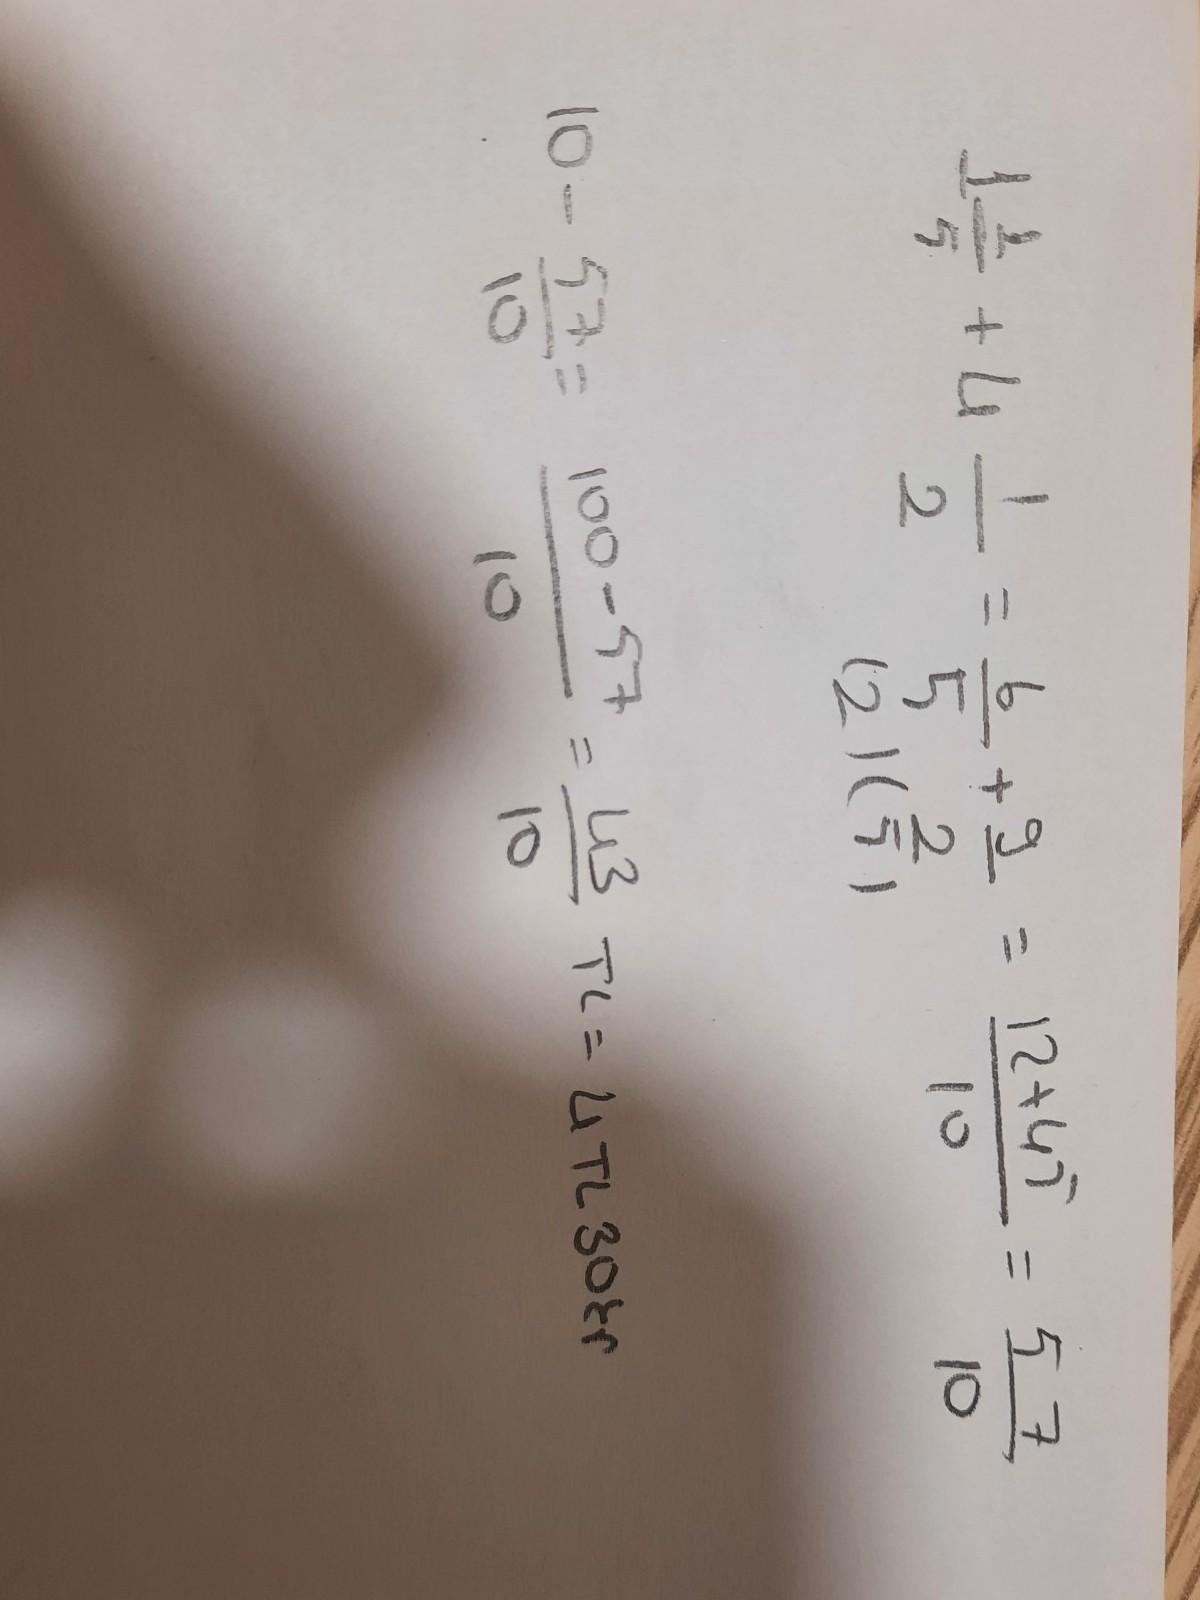 1 1/5 + 4 1/2 = 6/5 + 9/2 = 12+45/10 = 57/10
(2) (5)
10 - 57/10 = 100-57/10 = 43/10 TL = 4 TL 30kr